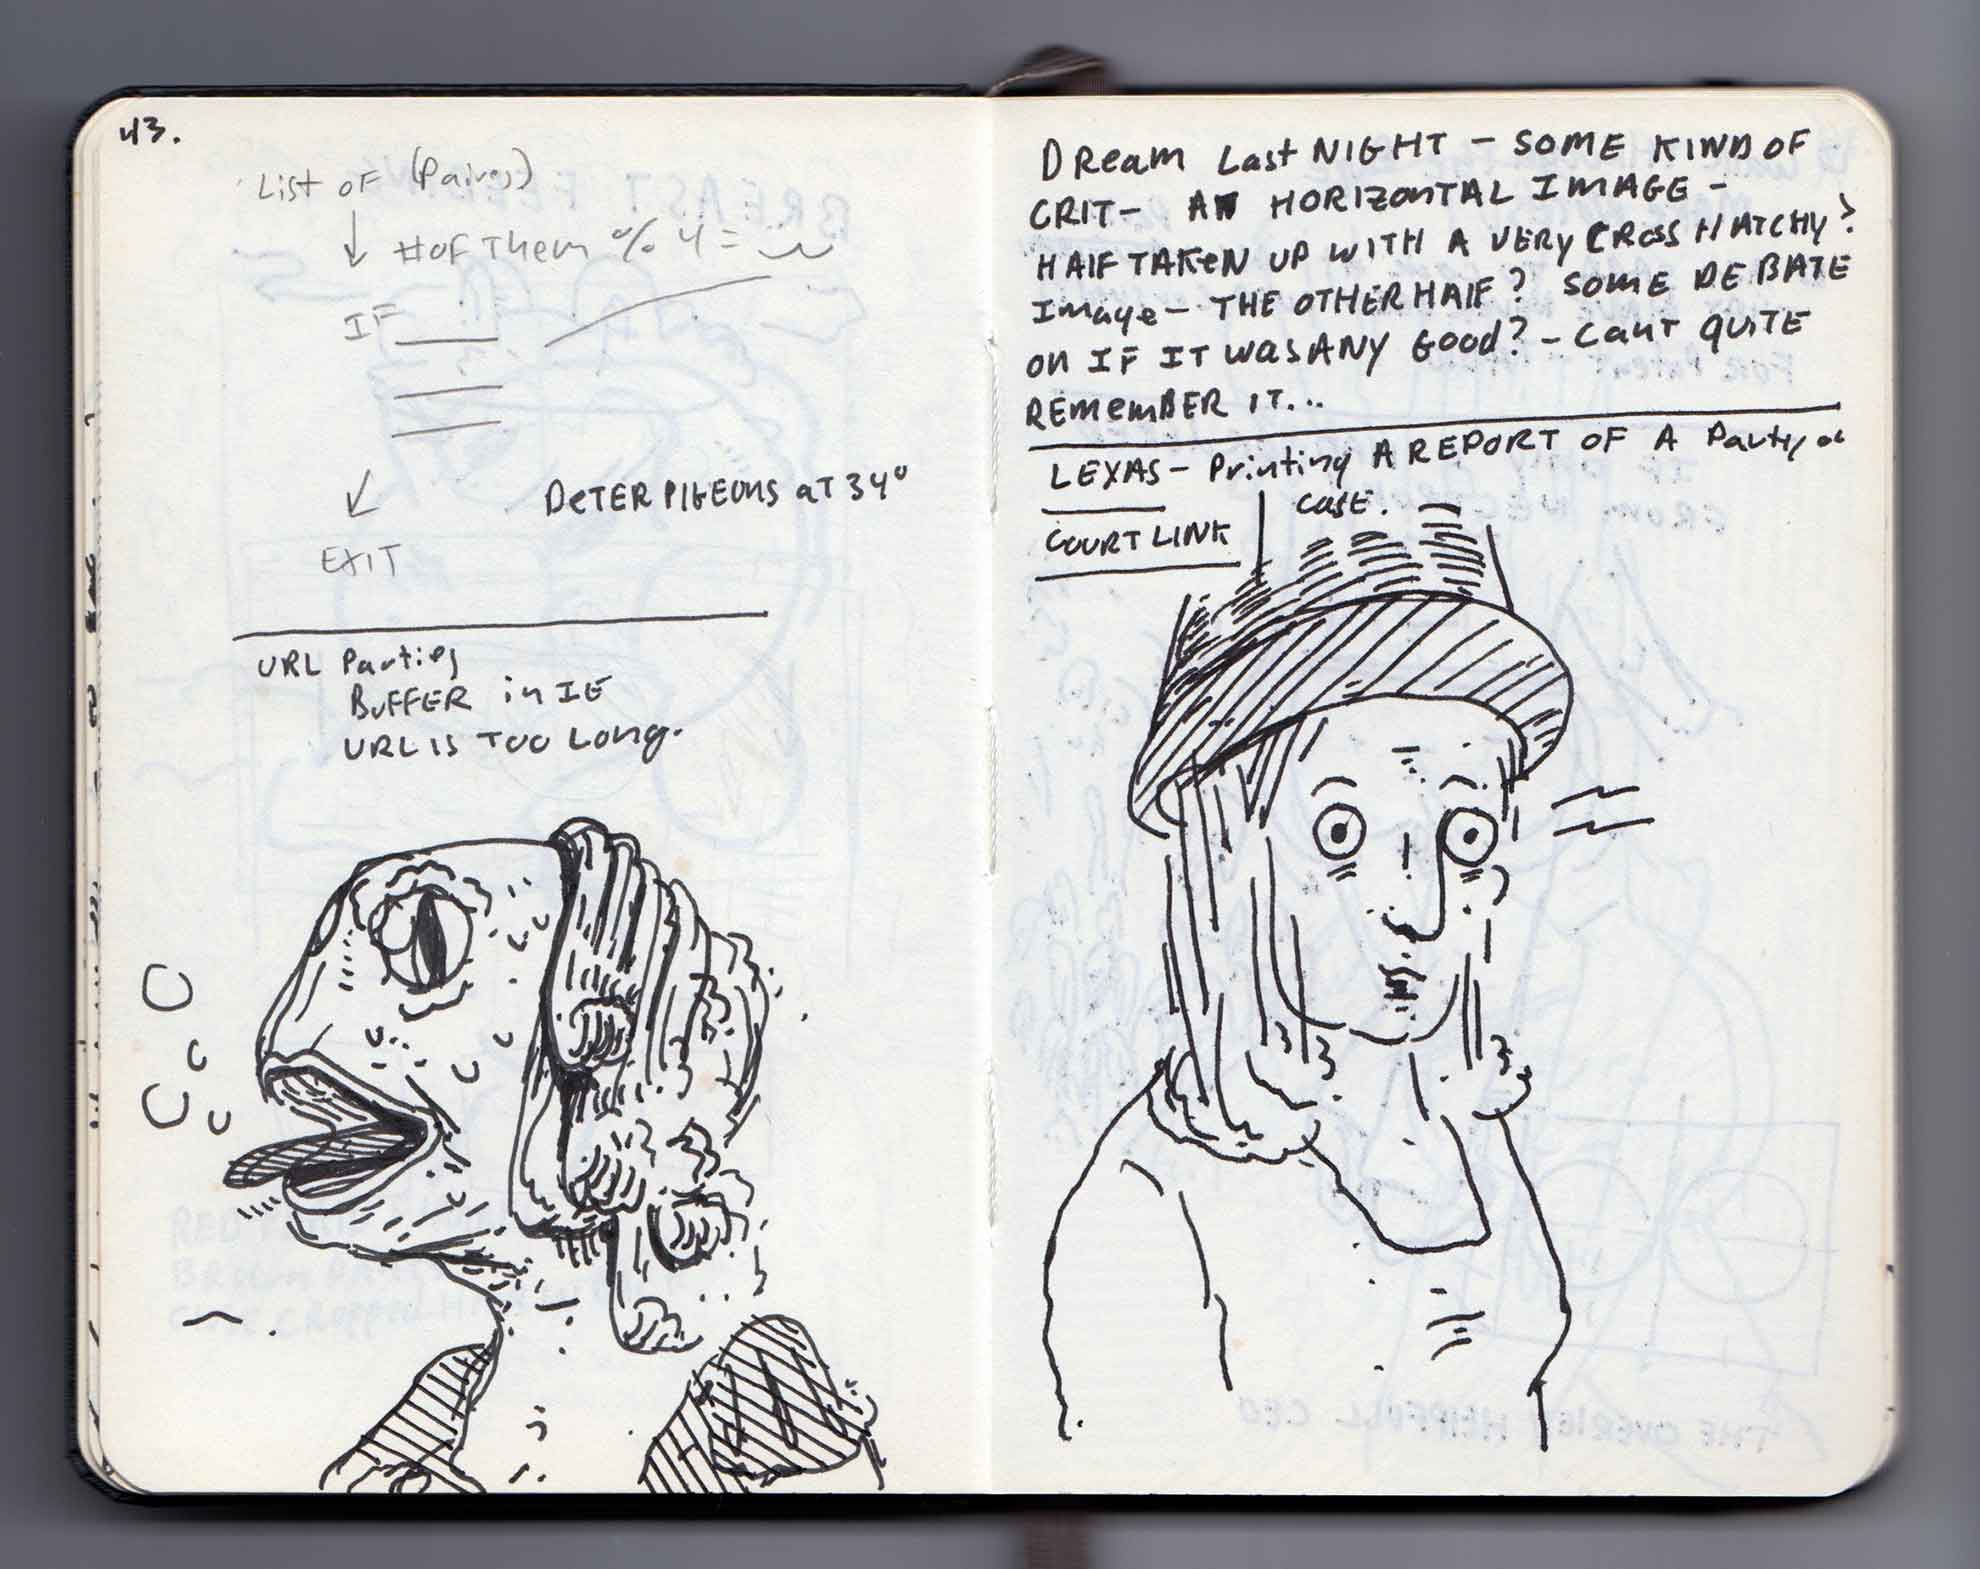 43.
List of (Pairs)
# of Them % 4 =
IF
EXIT
DETER PIGEONS AT 34°
URL Parties
BUFFER in IE
URL IS TOO LONG.
DReam Last NIGHT - SOME KIND OF
CRIT - A HORIZONTAL IMAGE -
HALF TAKEN UP WITH A VERY CROSS HATCHY?
Image - THE OTHER HALF? SOME DEBATE
ON IF IT WAS ANY GOOD? - CANT QUITE
REMEMBER IT...
LEXAS - Printing A REPORT OF A Party or
CASE.
COURT LINK